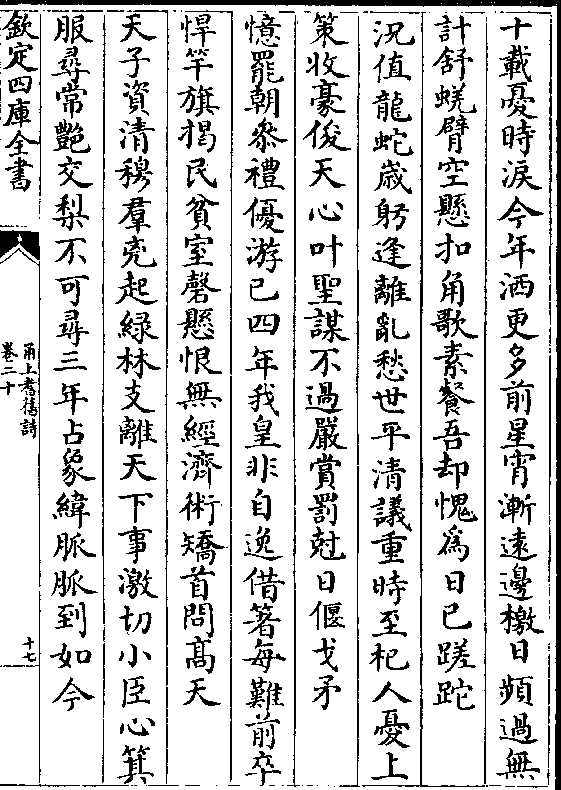 十載憂時淚今年洒更多前星宵漸遠邊檄日頻過無
計舒螳臂空懸扣角歌素餐吾却愧為日已蹉跎
況值龍蛇歲躬逢離亂愁世平清議重時至杞人憂上
策收豪俊天心叶聖謀不過嚴賞罰尅日偃戈矛
憶罷朝叅禮優游已四年我皇非自逸借箸每難前卒
悍竿旗揭民貧室磬懸恨無經濟術矯首問髙天
天子資清穆羣兇起綠林支離天下事激切小臣心箕
服尋常艷交梨不可尋三年占象緯脈脈到如今
欽定四庫全書
甬上耆舊詩
卷二十
十七